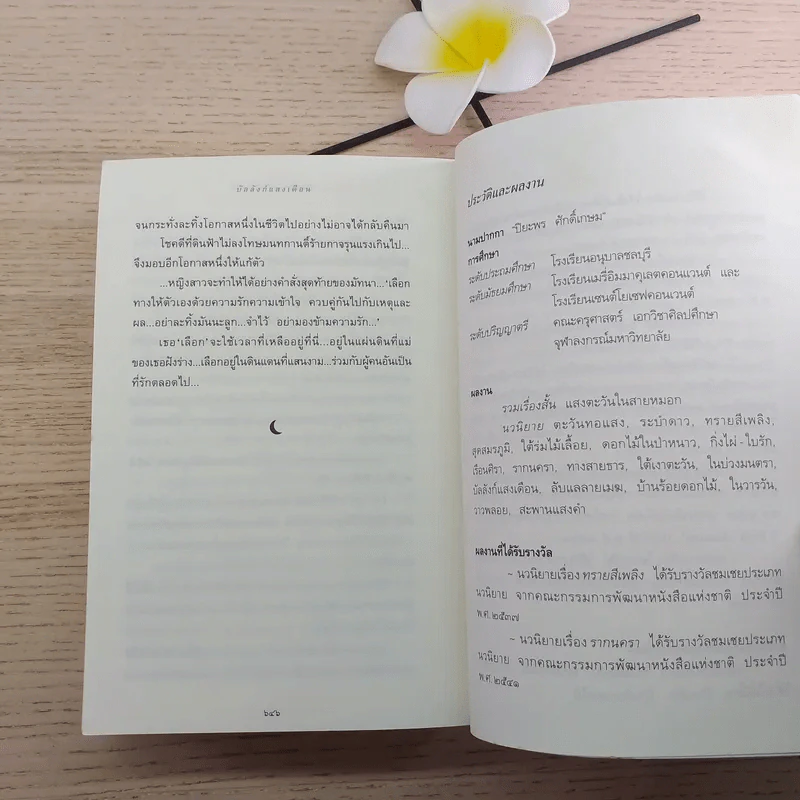 บัลลังก์แสงเดือน
จนกระทั่งละทิ้งโอกาสหนึ่งในชีวิตไปอย่างไม่อาจได้กลับคืนมา
โชคดีที่ดินฟ้าไม่ลงโทษมนทกานตี้ร้ายกาจรุนแรงเกินไป...
จึงมอบอีกโอกาสหนึ่งให้แก้ตัว
...หญิงสาวจะทำให้ได้อย่างคำสั่งสุดท้ายของมัทนา...‘เลือก
ทางให้ตัวเองด้วยความรักความเข้าใจ ควบคู่กันไปกับเหตุและ
ผล...อย่าละทิ้งมันนะลูก...จำไว้ อย่ามองข้ามความรัก...’
เธอ‘เลือก’จะใช้เวลาที่เหลืออยู่ที่นี่...อยู่ในแผ่นดินที่แม่
ของเธอฝังร่าง...เลือกอยู่ในดินแดนที่แสนงาม...ร่วมกับผู้คนอันเป็น
ที่รักตลอดไป...
๖๔๖
ประวัติและผลงาน
นามปากกา “ปิยะพร ศักดิ์เกษม”
การศึกษา
ระดับประถมศึกษา โรงเรียนอนุบาลชลบุรี
ระดับมัธยมศึกษา โรงเรียนเมรี่อิมมาคุเลตคอนแวนต์ และ
โรงเรียนเซนต์โยเซฟคอนเวนต์
ระดับปริญญาตรี คณะครุศาสตร์ เอกวิชาศิลปศึกษา
จุฬาลงกรณ์มหาวิทยาลัย
ผลงาน
รวมเรื่องสั้น แสงตะวันในสายหมอก
นวนิยาย ตะวันทอแสง, ระบำดาว, ทรายสีเพลิง,
สุดสมรภูมิ, ใต้ร่มไม้เลื้อย, ดอกไม้ในป่าหนาว, กิ่งไผ่-ใบรัก,
เรือนศิรา, รากนครา, ทางสายธาร, ใต้เงาตะวัน, ในบ่วงมนตรา,
บัลลังก์แสงเดือน, ลับแลลายเมฆ, บ้านร้อยดอกไม้, ในวารวัน,
วาวพลอย, สะพานแสงคำ
ผลงานที่ได้รับรางวัล
~ นวนิยายเรื่อง ทรายสีเพลิง ได้รับรางวัลชมเชยประเภท
นวนิยาย จากคณะกรรมการพัฒนาหนังสือแห่งชาติ ประจำปี
พ.ศ.๒๕๓๗
~ นวนิยายเรื่อง รากนครา ได้รับรางวัลชมเชยประเภท
นวนิยาย จากคณะกรรมการพัฒนาหนังสือแห่งชาติ ประจำปี
พ.ศ.๒๕๔๑